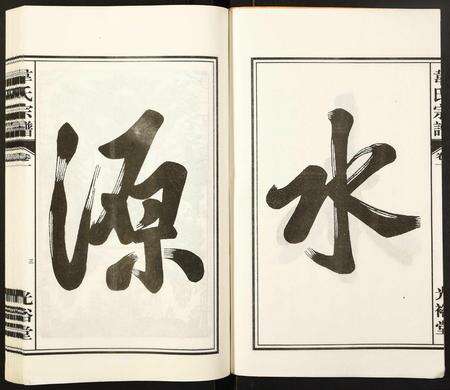 韋氏宗譜 卷一 光裕堂
水
源
韋氏宗譜 卷一 三 光裕堂